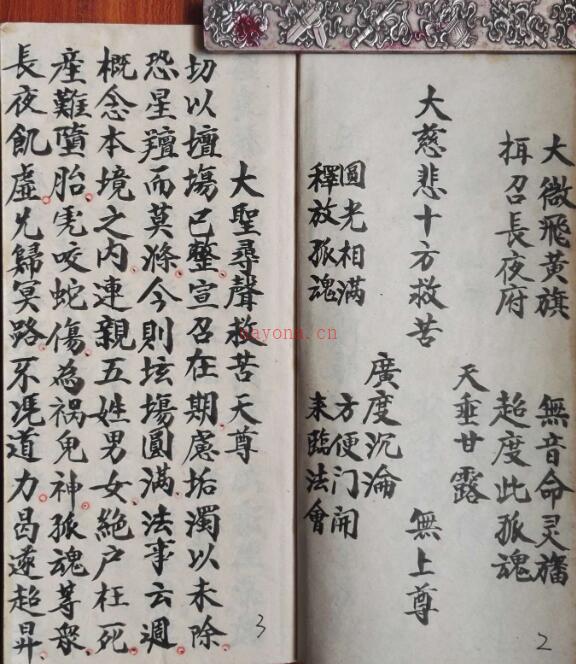 大微飛黄旗 無音命灵旛
拑召長夜府 超度此孤魂
天垂甘露
大慈悲十方救苦 無上尊
廣度沉淪
圓光相满 方便门開
釋放孤魂 来臨法會
2
大聖尋聲救苦天尊
切以壇塲已整宣召在期慮垢濁以未除
恐星壇而莫滌今則坛塲圓满法事云週
概念本境之内連親五姓男女絶户枉死
産難墮胎虎咬蛇傷為禍鬼神孤魂等衆
長夜飢虚兄歸冥路不慿道力曷遂超昇
3
nayona.cn